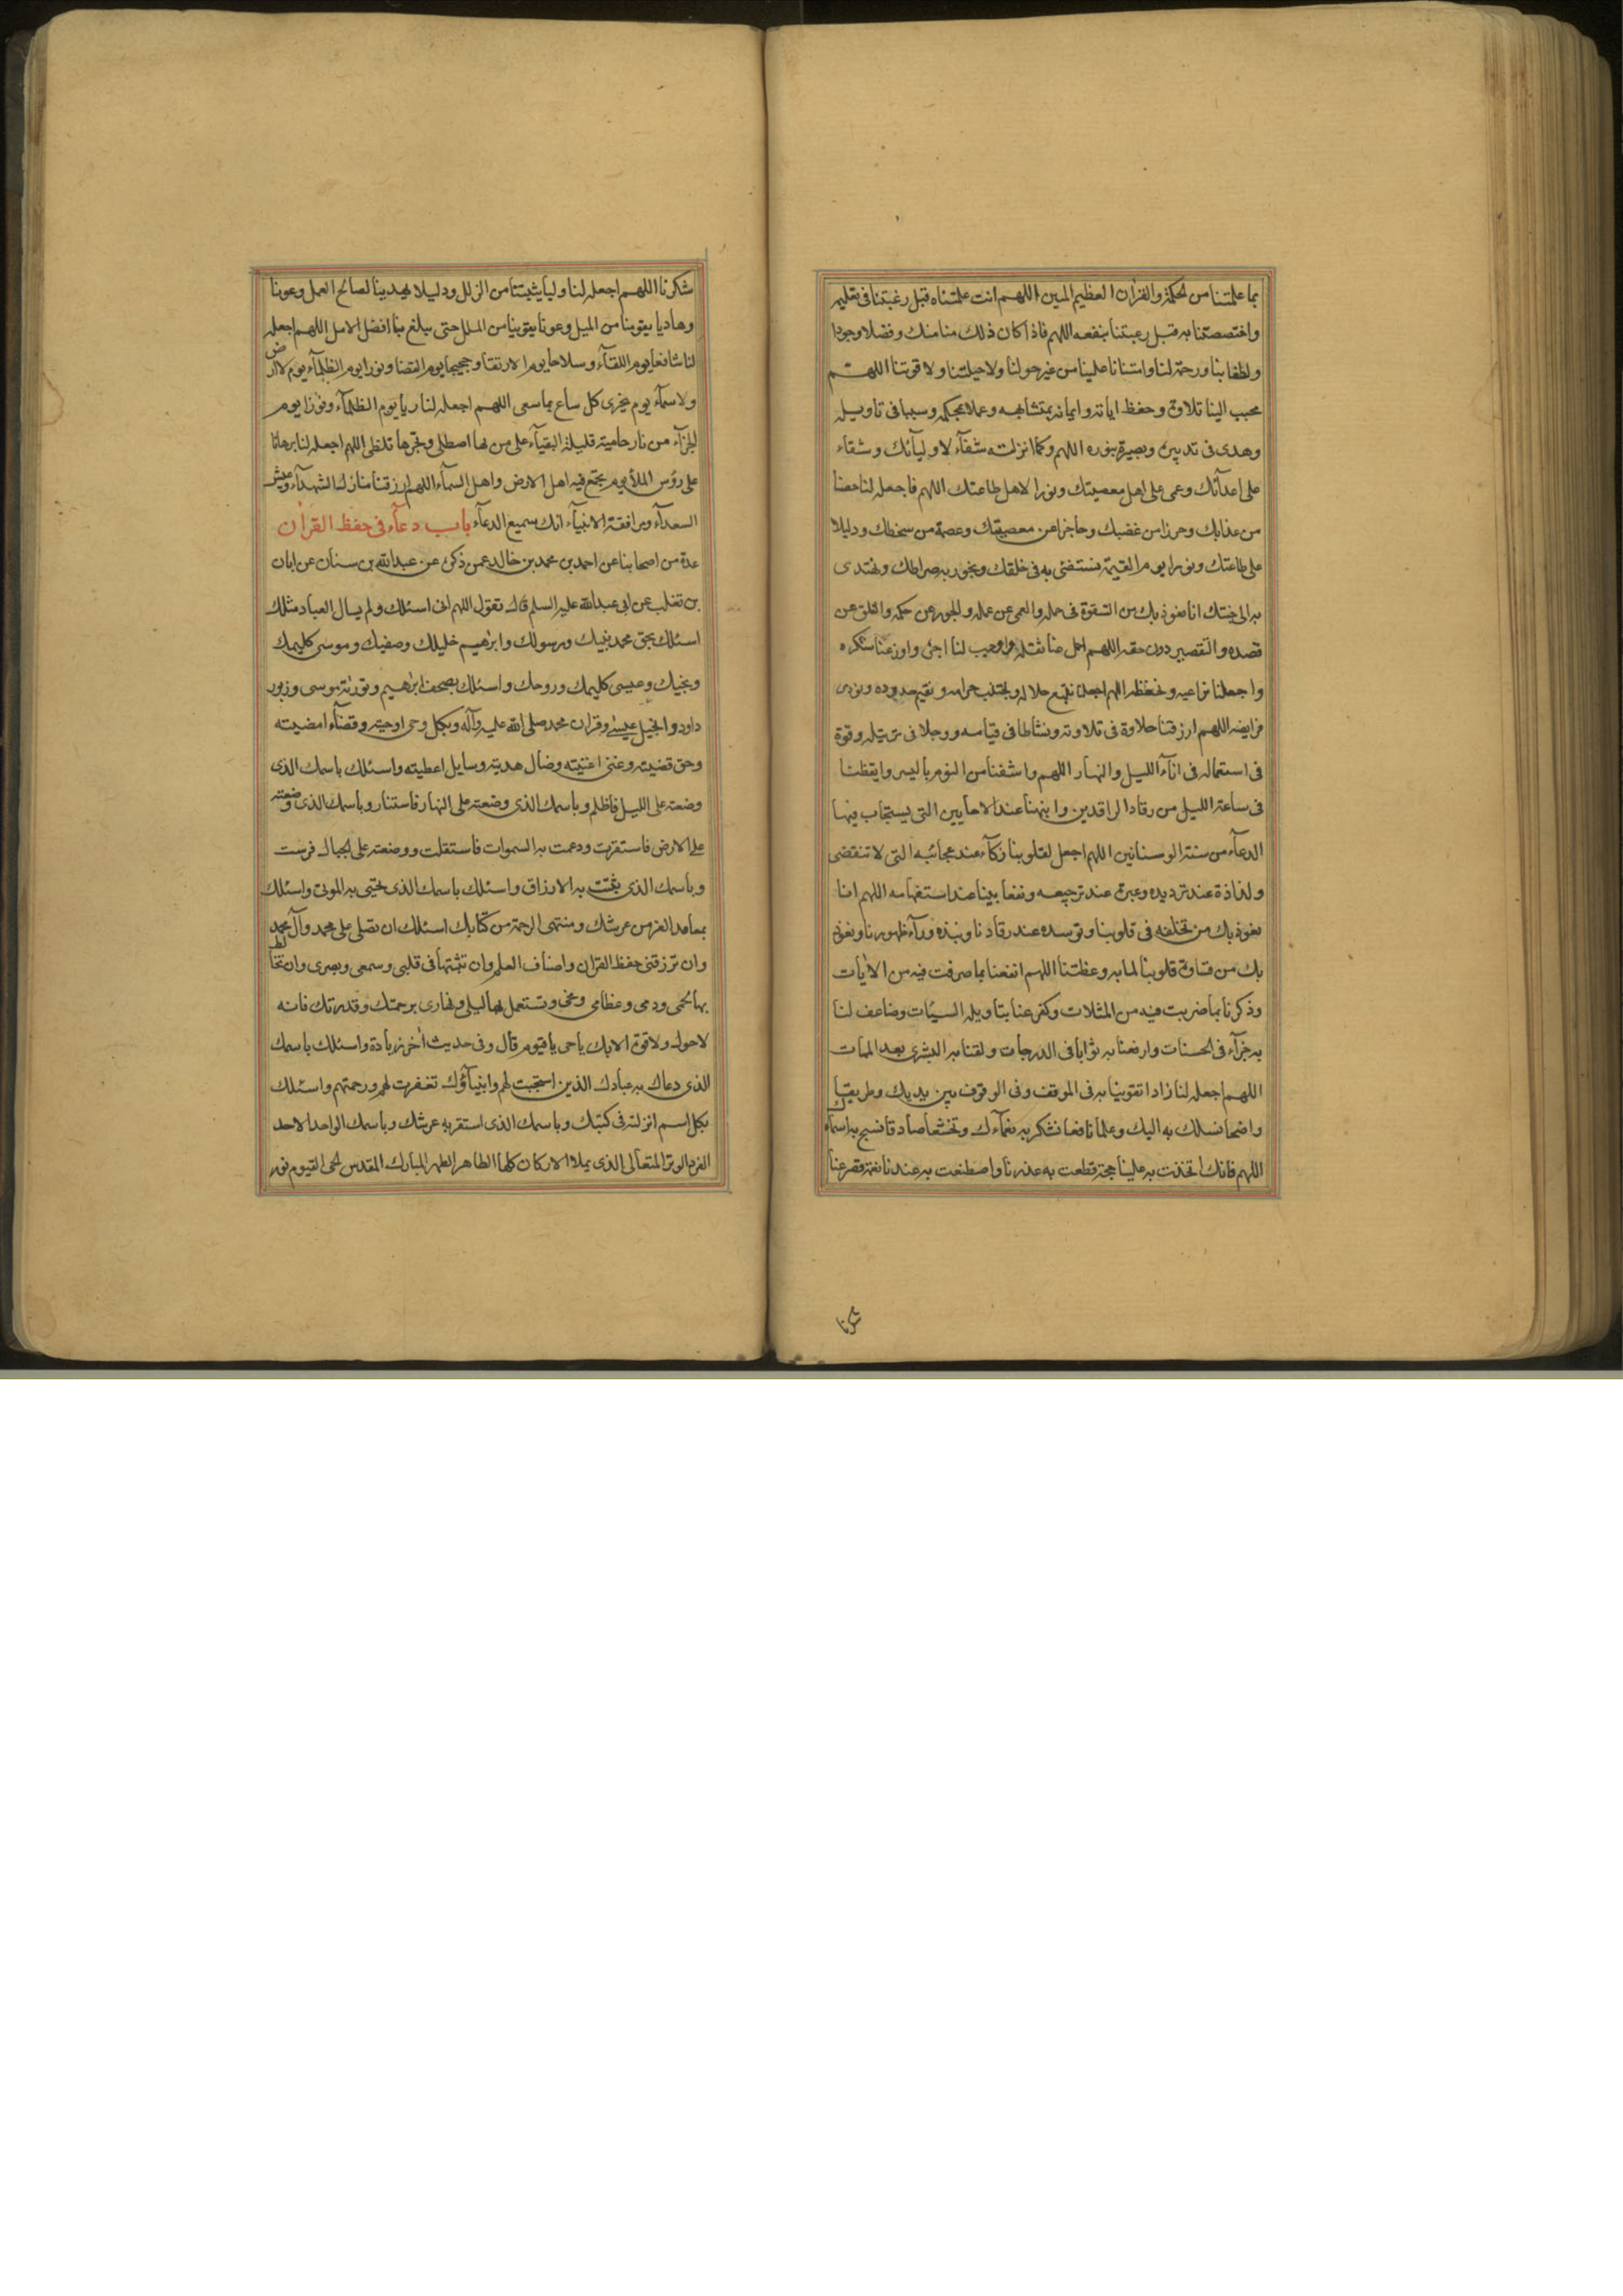 بما علمتنا من الحكمة والقران العظيم المبين اللهم انت علمتناه قبل رغبتنا فى تعليمه
واختصصتنا به قبل رغبتنا بنفعه اللهم فاذا كان ذلك منا منك وفضلا وجودا
ولطفا بنا ورحمة لنا وامتنانا علينا من غير حولنا ولا حيلتنا ولا قوتنا اللهم
محبب الينا تلاوته وحفظ اياته وايمانا بمتشابهه وعملا بمحكمه وسببا فى تاويله
وهدى فى تدبيره وبصيرة بنوره اللهم وكما انزلته شفآء لاوليآئك وشقاء
على اعدآئك وعمى على اهل معصيتك ونورا لاهل طاعتك اللهم فاجعله لنا حصنا
من عذابك وحرزا من غضبك وحاجزا عن معصيتك وعصمة من سخطك ودليلا
على طاعتك ونورا يوم القيمة نستضئ به فى خلقك ونجوز به صراطك ونهتدى
به الى جنتك انا نعوذ بك من الشقوة فى حمله والعمى عن عمله والجور عن حكمه والغلو عن
قصده والتقصير دون حقه اللهم احمل عنا ثقله واوجب لنا اجره واوزعنا شكره
واجعلنا نراعيه ونحفظه اللهم اجعلنا نتبع حلاله ونجتنب حرامه ونقيم حدوده ونودى
فرايضه اللهم ارزقنا حلاوة فى تلاوته ونشاطا فى قيامه ووجلا فى ترتيله وقوة
فى استعماله فى انآء الليل والنهار اللهم واشفنا من النوم باليسير وايقظنا
فى ساعة الليل من رقاد الراقدين وانبهنا عند الاحايين التى يستجاب فيها
الدعآء من سنة الوسنانين اللهم اجعل لقلوبنا زكآء عند عجائبه التى لا تنقضى
ولذاذة عند ترديده وعبرة عند ترجيعه ونفعا بينا عند استفهامه اللهم انا
نعوذ بك من تخلفه فى قلوبنا وتوسده عند رقادنا ونبذه ورآء ظهورنا ونعوذ
بك من قساوة قلوبنا لما به وعظتنا اللهم انفعنا بما صرفت فيه من الايات
وذكرنا بما ضربت فيه من المثلات وكفر عنا بتاويله السيئات وضاعف لنا
به جزآء فى الحسنات وارفعنا به ثوابا فى الدرجات ولقنا به البشرى بعد الممات
اللهم اجعله لنا زادا تقوينا به فى الموقف وفى الوقوف بين يديك وطريقا
واضحا نسلك به اليك وعلما نافعا نشكر به نعمآءك وتخشعا صادقا نسبح به اسمآءك
اللهم فانك اتخذت به علينا حجة قطعت به عذرنا واصطنعت به عندنا نعمة قصر عنها
شكرنا
شكرنا اللهم اجعله لنا وليا يثبتنا من الزلل ودليلا يهدينا لصالح العمل وعونا
وهاديا يقوينا من الميل وعونا يقوينا من الملل حتى يبلغ بنا افضل الامل اللهم اجعله
لنا شافعا يوم اللقآء وسلاحا يوم الارتقا وحجيجا يوم القضا ونورا يوم الظلمآء يوم لا ارض
ولا سمآء يوم يجزى كل ساع بما سعى اللهم اجعله لنا ريا يوم الظلمآء ونورا يوم
الجزآء من نار حامية قليلة البقيآء على من بها اصطلى وبحرها تلظى اللهم اجعله لنا برهانا
على رؤس الملأ يوم يجتمع فيه اهل الارض واهل السمآء اللهم ارزقنا منازل الشهدآء وعيش
السعدآء ومرافقة الانبيآء انك سميع الدعآء باب دعآء فى حفظ القران
عدة من اصحابنا عن احمد بن محمد بن خالد عمن ذكره عن عبدالله بن سنان عن ابان
بن تغلب عن ابى عبدالله عليه السلم قال تقول اللهم انى اسئلك ولم يسال العباد مثلك
اسئلك بحق محمد نبيك ورسولك وابرهيم خليلك وصفيك وموسى كليمك
ونجيك وعيسى كليمك وروحك واسئلك بصحف ابرهيم وتورية موسى وزبور
داود وانجيل عيسى وقران محمد صلى الله عليه وآله وبكل وحى اوحيته وقضآء امضيته
وحق قضيته وغنى اغنيته وضال هديته وسايل اعطيته واسئلك باسمك الذى
وضعته على الليل فاظلم وباسمك الذى وضعته على النهار فاستنار وباسمك الذى وضعته
على الارض فاستقرت ودعمت به السموات فاستقلت ووضعته على الجبال فرست
وباسمك الذى بثثت به الارزاق واسئلك باسمك الذى تحيى به الموتى واسئلك
بمعاقد العز من عرشك ومنتهى الرحمة من كتابك اسئلك ان تصلى على محمد وآل محمد
وان ترزقنى حفظ القران واصناف العلم وان تثبتها فى قلبى وسمعى وبصرى وان تخالط
بها لحمى ودمى وعظامى ومخى وتستعمل بها ليلى ونهارى برحمتك وقدرتك فانه
لا حول ولا قوة الا بك يا حى يا قيوم قال وفى حديث اخر زيادة واسئلك باسمك
الذى دعاك به عبادك الذين استجبت لهم وانبيآؤك تغفرت لهم ورحمتهم واسئلك
بكل اسم انزلته فى كتبك وباسمك الذى استقر به عرشك وباسمك الواحد الاحد
الفرد الوتر المتعالى الذى يملا الاركان كلها الطاهر الطهر المبارك المقدس الحى القيوم نور